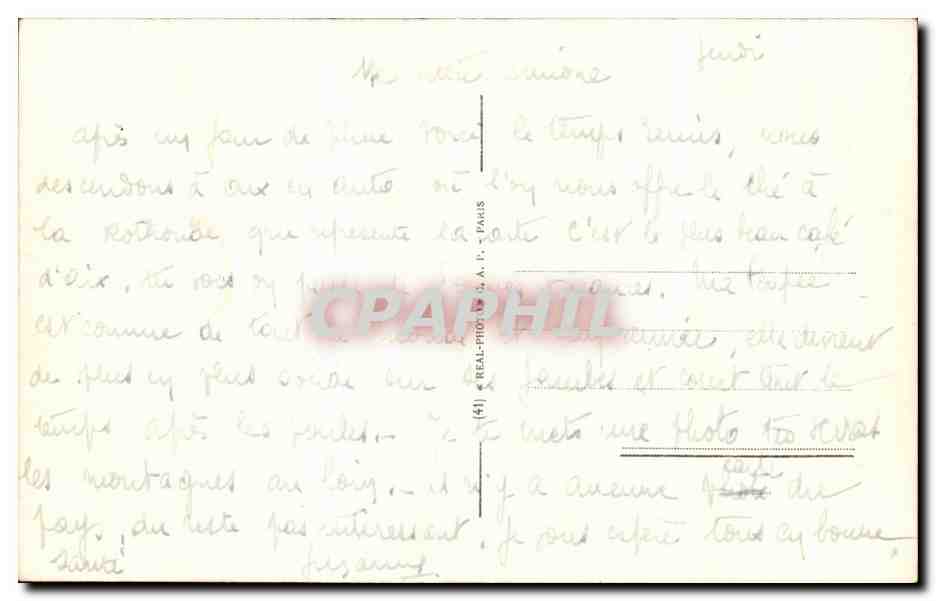 Jeudi
Ma petite Simone
après un jour de pluie voici le temps remis, nous
descendons à aix en auto où l'on nous offre le thé à
la Rothonde, que représente la carte c'est le plus beau café
d'aix, tu vois on peut
Ma poupée
est connue de tout le monde et
elle devient
de plus en plus solide sur ses jambes et court tout le
temps après les poules. Je te mets une photo
les montagnes au loin. il n'y a aucune carte du
pays, du reste pas intéressant. Je vous espère tous en bonne
santé
Suzanne.
(41) REAL-PHOTO C. A. P. - PARIS
CPAPHIL